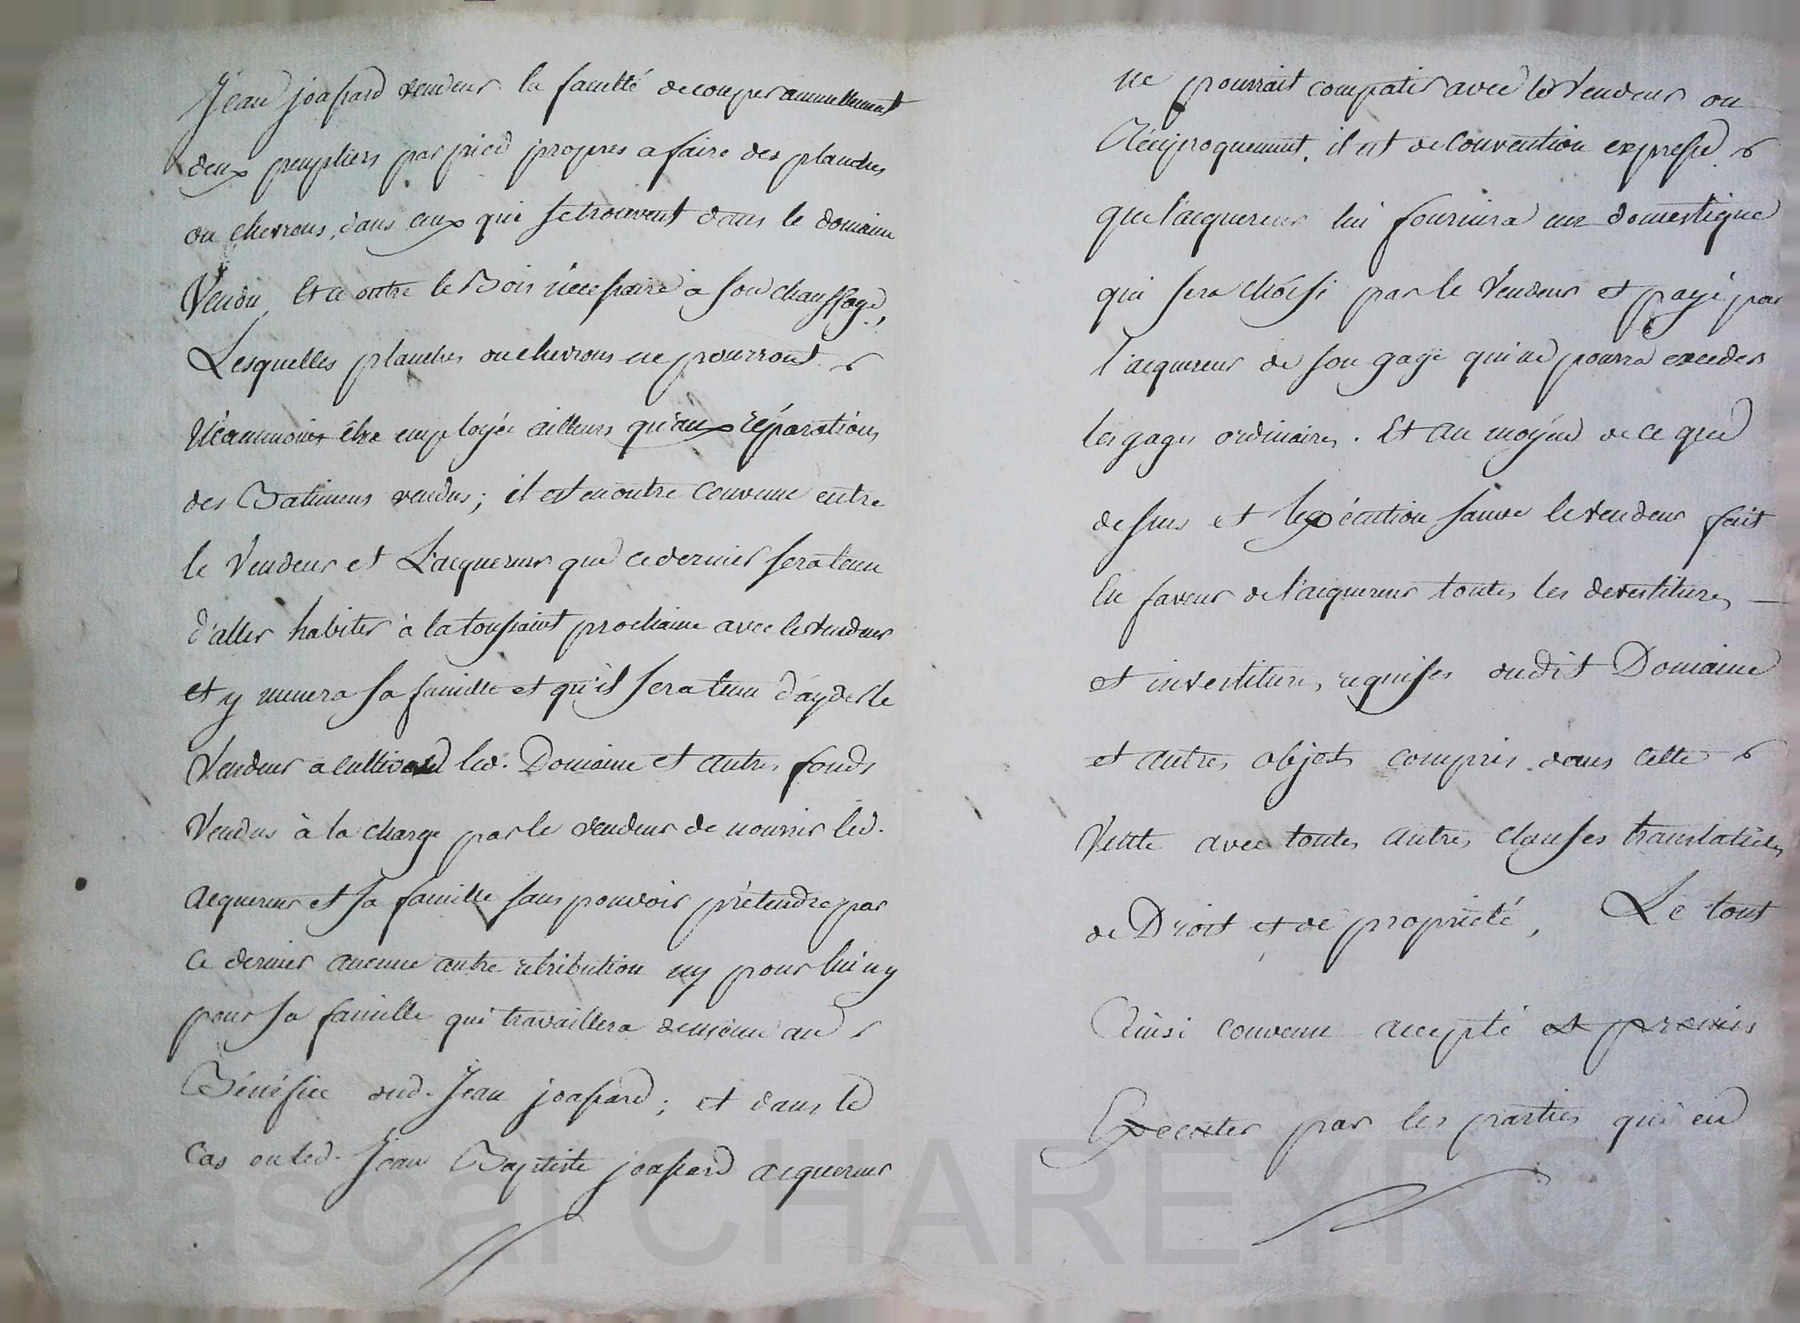 Jean joassard vendeur la faculté de couper annuellement
deux peupliers par pied propres a faire des planches
ou chevrons, dans ceux qui se trouvent dans le domaine
Vendu, Et en outre le Bois nécessaire à son chauffage,
Lesquelles planches ou chevrons ne pourront
Néanmoins être employée ailleurs qu'aux réparations
des Batimens vendus; il est en outre convenu entre
le Vendeur et L'acquereur que ce dernier sera tenu
d'aller habiter à la toussaint prochaine avec le vendeur
et y menera sa famille et qu'il sera tenu d'ayder le
Vendeur a cultiver led. Domaine et autres fonds
Vendus à la charge par le vendeur de nourrir led.
acquereur et sa famille sans pouvoir prétendre par
ce dernier aucune autre retribution ny pour lui ny
pour sa famille qui travaillera de même au
Bénéfice dud. Jean joassard; et dans le
cas ou led. Jean Baptiste joassard acquereur
ne pourrait compatir avec le vendeur ou
Réciproquement, il est de Convention expresse
que l'acquereur lui fournira un domestique
qui sera choisi par le Vendeur et payé par
l'acquereur de son gage qui ne pourra exceder
les gages ordinaires. Et au moyen de ce que
dessus et l'exécution sauve le vendeur fait
En faveur de l'acquereur toutes les devestitures
et investitures requises dudit Domaine
et autres objets compris dans cette
Vente avec toutes autres clauses translatives
de Droit et de propriété, Le tout
Ainsi convenu accepté et promis
Executer par les parties qui en
Pascal CHAREYRON